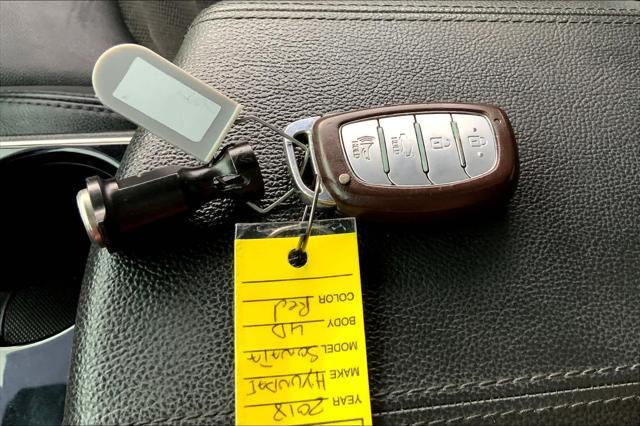 YEAR 2018
MAKE HYUNDAI
MODEL Sonata
BODY 4D
COLOR Red
HOLD
HOLD